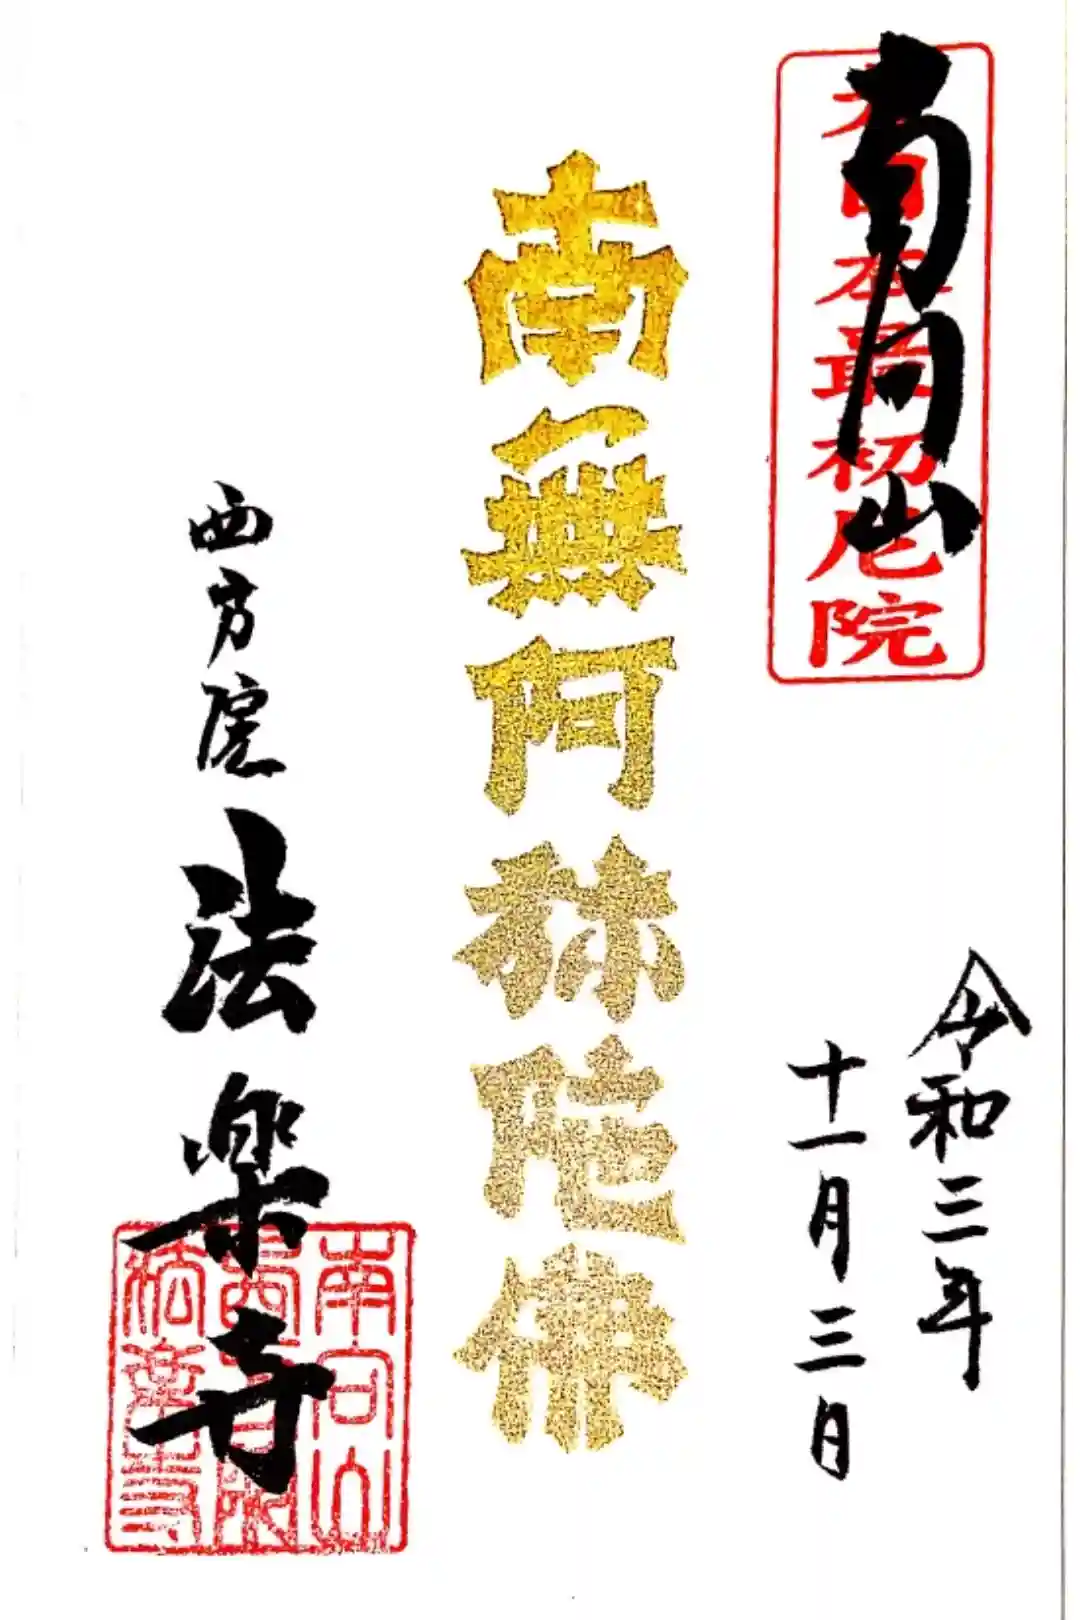 南向山
日本最初尼院
令和三年
十一月三日
南無阿弥陀佛
西方院 法樂寺
南向山
法樂寺